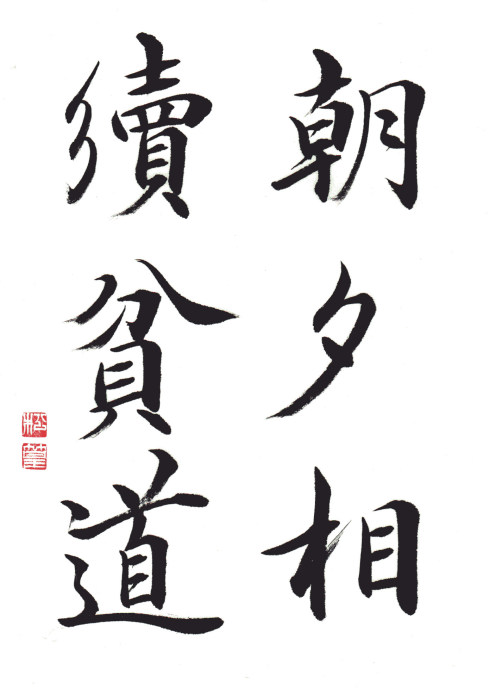 朝夕相
續貧道